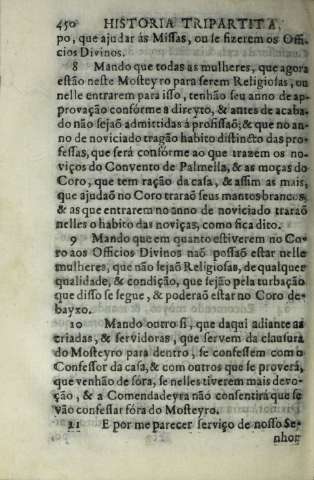 450 HISTORIA TRIPARTITA.
po, que ajudar ás Missas, ou se fizerem os Offi-
cios Divinos.
8 Mando que todas as mulheres, que agora
estão neste Mosteyro para serem Religiosas, ou
nelle entrarem para isso, tenhão seu anno de ap-
provação conforme a direyto, & antes de acaba-
do não sejaõ admittidas á profissaõ; & que no an-
no de noviciado tragão habito distincto das pro-
fessas, que será conforme ao que trazem os no-
viços do Convento de Palmella, & as moças do
Coro, que tem ração da casa, & assim as mais,
que ajudaõ no Coro traraõ seus mantos brancos,
& as que entrarem no anno de noviciado traraõ
nelles o habito das noviças, como fica dito.
9 Mando que em quanto estiverem no Co-
ro aos Officios Divinos naõ possaõ estar nelle
mulheres, que não sejaõ Religiosas, de qualquer
qualidade, & condição, que sejão pela turbação
que disso se segue, & poderaõ estar no Coro de-
bayxo.
10 Mando outro si, que daqui adiante as
criadas, & servidoras, que servem da clausura
do Mosteyro para dentro, se confessem com o
Confessor da casa, & com outros que se proverá,
que venhão de fóra, se nelles tiverem mais devo-
ção, & a Comendadeyra não consentirá que se
vão confessar fóra do Mosteyro.
11 E por me parecer serviço de nosso Se-
nhor